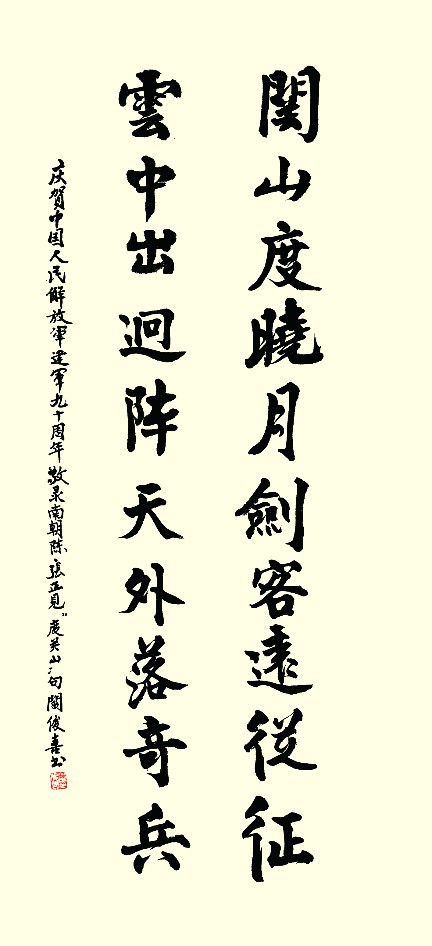 関山度曉月劍客遠従征
雲中出迥阵天外落奇兵
庆賀中国人民解放军建軍九十周年敬录南朝陈張正見"度关山"句俊喜书